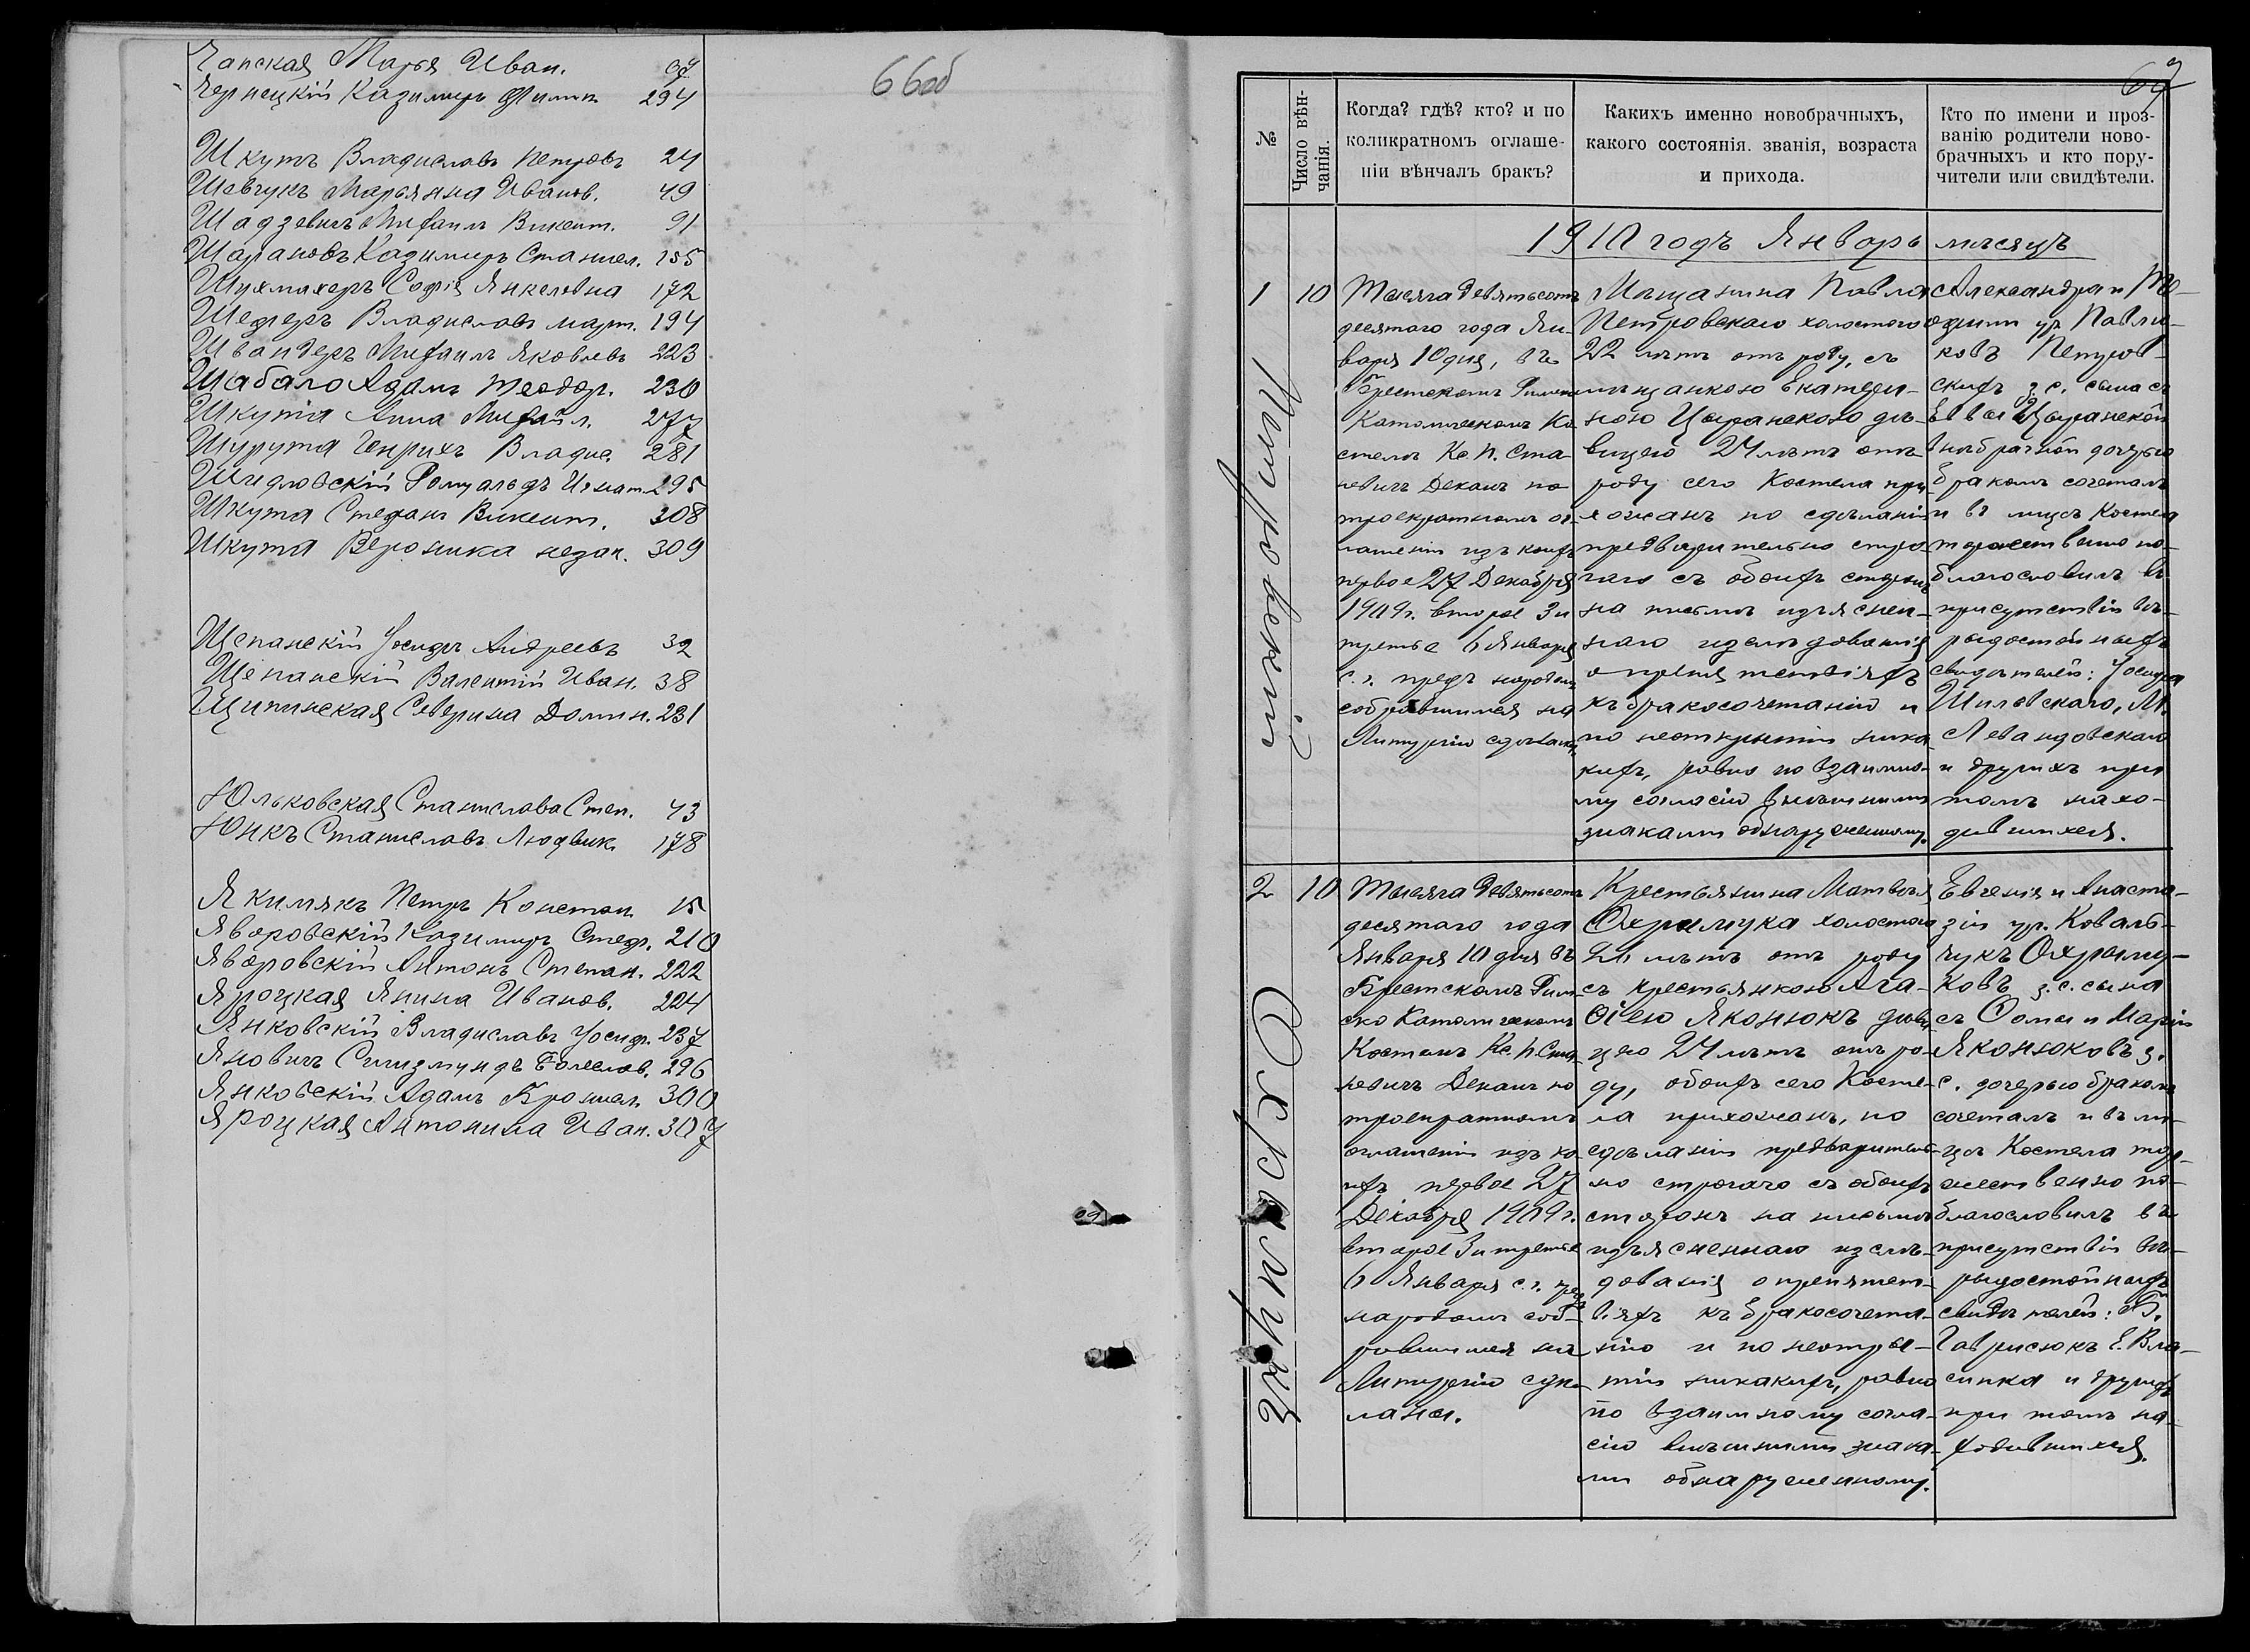 Чапская Марья Иван.
Чернецкій Казимиръ Филип. 294
66об
Шкутъ Владиславъ Петровъ 24
Шевчукъ Марьянна Иванов. 49
Шадзевичъ Михаилъ Викент. 91
Шарановъ Казимиръ Станисл. 155
Шухмахеръ Софія Янкелевна 172
Шефлеръ Владиславъ март. 194
Швандеръ Михаилъ Яковлевъ 223
Шабало Адамъ Теодор. 230
Шкута Анна Михайл. 277
Шурута Генрихъ Владис. 281
Шидловскій Ромуальдъ Игнат. 295
Шкута Стефанъ Викент. 308
Шкута Вероника незак. 309
Щепанскій Іосифъ Андреевъ 32
Щепанскій Валентій Иван. 38
Щипинская Северина Домин. 231
Юльковская Станислава Степ. 43
Юнкъ Станиславъ Людвик. 178
Якимякъ Петръ Констан. 15
Яворовскій Казимиръ Стеф. 210
Яворовскій Антонъ Степан. 222
Яроцкая Янина Иванов. 224
Янковскій Владиславъ Іосиф. 237
Яновичъ Сигизмундъ Болеслов. 296
Янковскій Адамъ Бронисл. 300
Яроцкая Антонина Иван. 307
67
№
Число вѣн-
чанія.
Когда? гдѣ? кто? и по
коликратномъ оглаше-
ніи вѣнчалъ бракъ?
Какихъ именно новобрачныхъ,
какого состоянія. званія, возраста
и прихода.
Кто по имени и проз-
ванію родители ново-
брачныхъ и кто пору-
чители или свидѣтели.
1910 годъ Январь мѣсяцъ
1
10
Петровскій
Тысяча девятьсотъ
десятого года Ян-
варя 10 дня, въ
Брестскомъ Римско
Католическомъ Ко-
стелѣ Кс. П. Ста-
невичъ Деканъ по
троекратномъ ог-
лашеніи изъ коихъ
первое 27 Декабря
1909 г. второе 3 и
третье 6 Января
с. г. предъ народомъ
собравшимся на
Литургію сдѣланы,
Мѣщанина Павла
Петровскаго холостого
22 лѣтъ отъ роду, съ
мѣщанкою Екатери-
ною Цыранскою дѣ-
вицею 24 лѣтъ отъ
роду сего Костела при-
хожанъ по сдѣланіи
предварительно стро-
гаго съ обоихъ сторонъ
на письмѣ изъяснен-
наго изслѣдованія
о препятствіяхъ
къ бракосочетанію и
по неоткрытіи ника-
кихъ, равно по взаимно-
му согласію внѣшними
знаками обнаруженному.
Александра и Те-
одзіи ур. Павлю-
ковъ Петров-
скихъ з. с. сына съ
Еввы Цыранской
внѣбрачной дочерью
бракомъ сочеталъ
и въ лицѣ Костела
торжественно по-
благословилъ въ
присутствіи вѣ-
рыдостойныхъ
свидѣтелей: Іосифа
Шильвскаго, М.
Левандовскаго
и другихъ при
томъ нахо-
дившихся.
2
10
Охримукъ
Тысяча девятьсотъ
десятаго года
Января 10 дня въ
Брестскомъ Рим-
ско Католическомъ
Костелѣ Кс. П. Ста-
невичъ Деканъ по
троекратномъ
оглашеніи изъ ко-
ихъ первое 27
Декабря 1909 г.
второе 3 и третье
6 Января с. г. предъ
народомъ соб-
равшимся на
Литургію сдѣ-
ланы.
Крестьянина Матвѣя
Охримука холостого
21 лѣтъ отъ роду
съ крестьянкою Ага-
ѳіею Яконюкъ дѣви-
цею 24 лѣтъ отъ ро-
ду, обоихъ сего Косте-
ла прихожанъ, по
сдѣланіи предваритель-
но строгаго съ обоихъ
сторонъ на письмѣ
изъясненнаго изслѣ-
дованія о препятст-
віяхъ къ бракосочета-
нію и по неоткры-
тіи никакихъ, равно
по взаимному согла-
сію внѣшними знака-
ми обнаруженному.
Евгенія и Анаста-
зіи ур. Коваль-
чукъ Охриму-
ковъ з. с. сына
съ Ѳомы и Маріи
Яконюковъ з.
с. дочерью бракомъ
сочеталъ и въ ли-
цѣ Костела тор-
жественно по-
благословилъ въ
присутствіи вѣ-
рыдостойныхъ
свидѣтелей: В.
Гаврисюкъ Е. Вла-
сика и другихъ
при томъ на-
ходившихся.